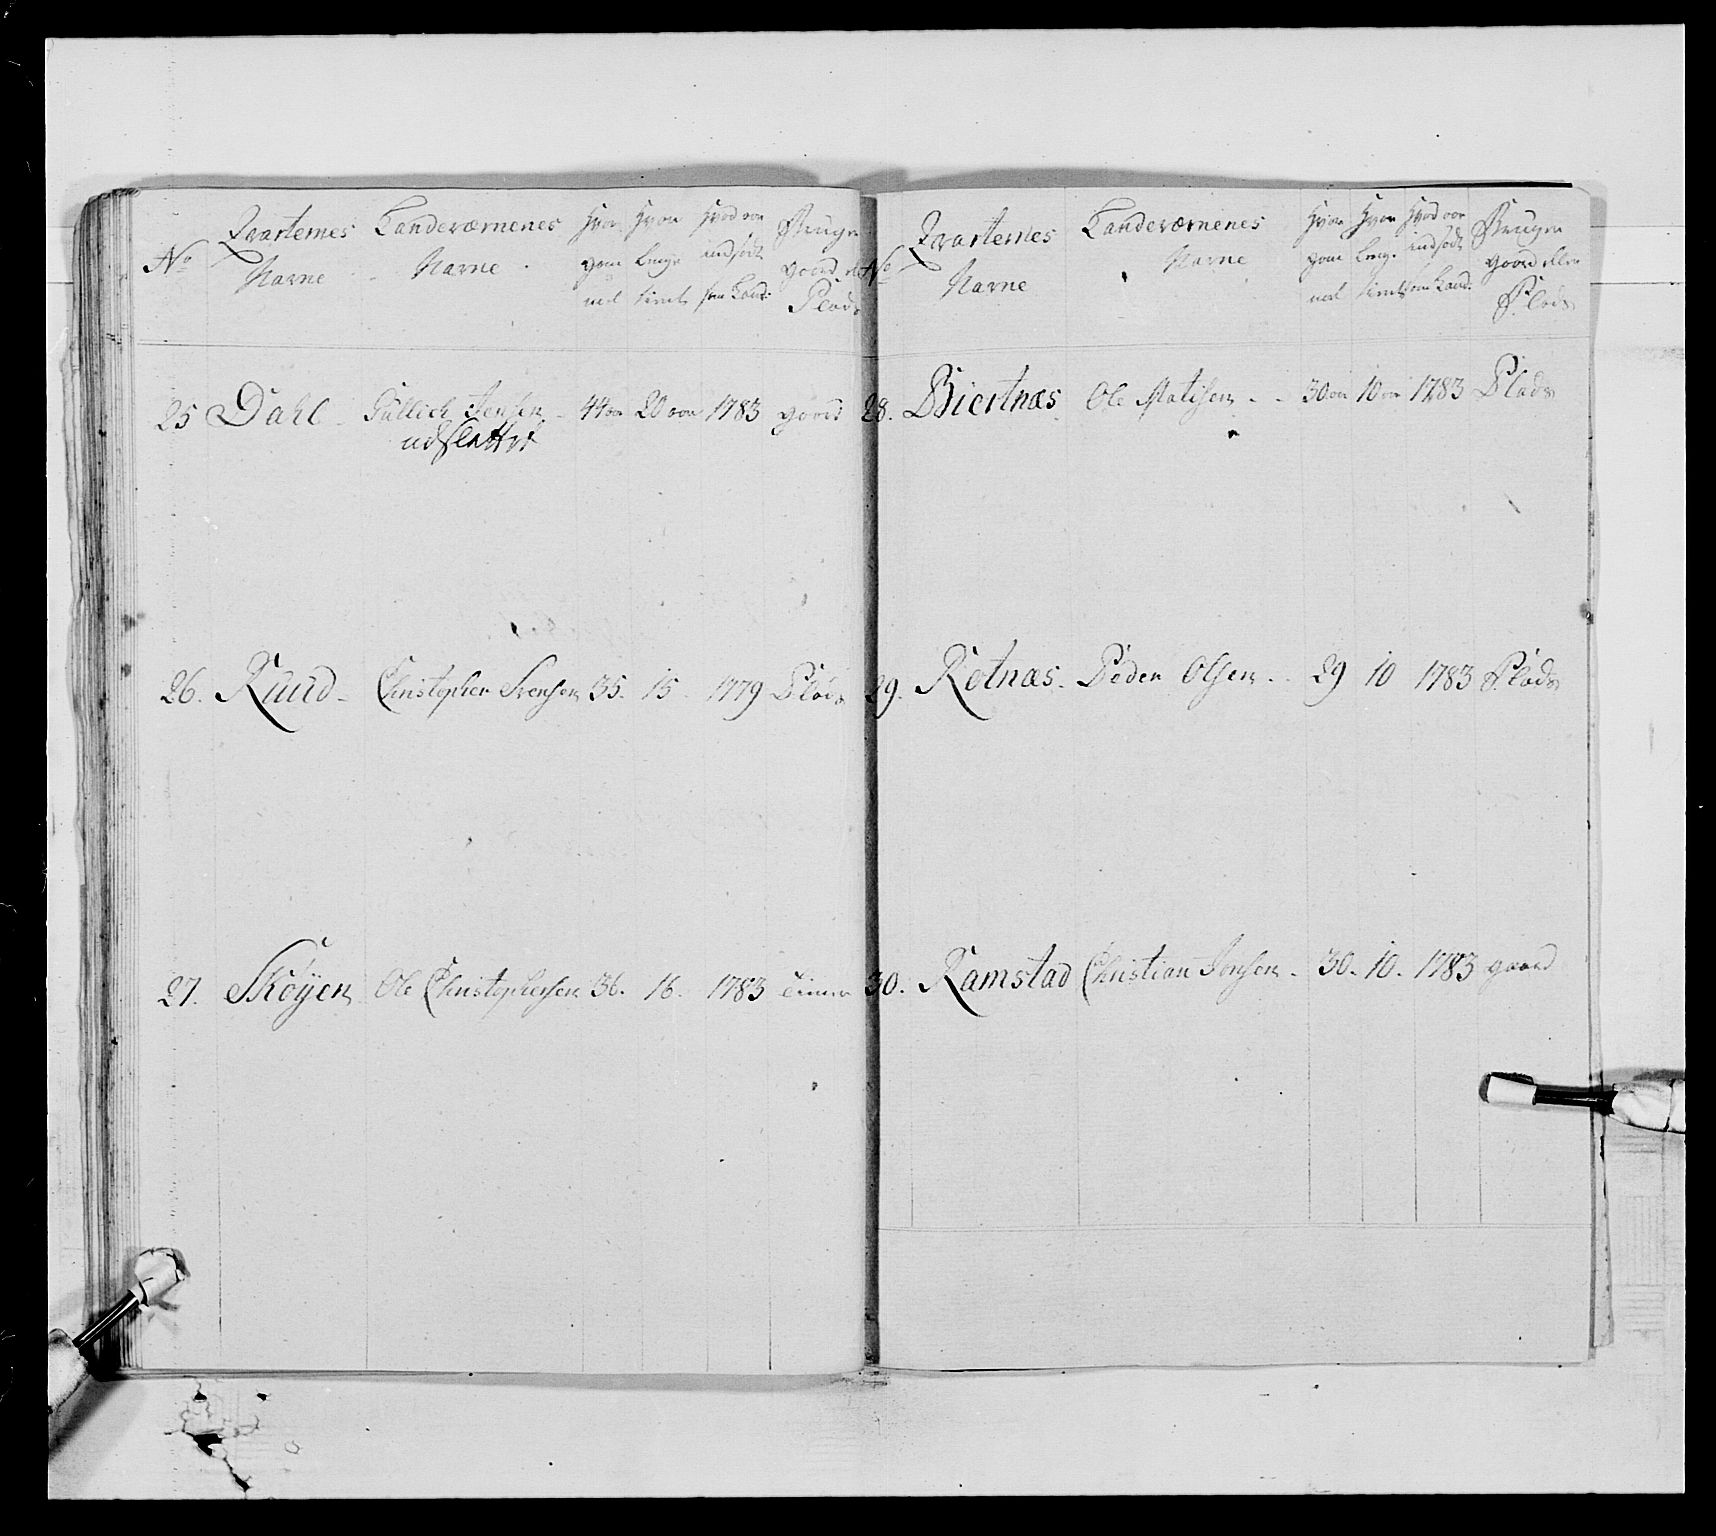 No
Qvarternes Navne
Landeværnenes Navne
Hvor gam̅el
Hvor lenge tient
Hvad aar indsadt som Land:
Bruger gaard el Plads
25 Dahl - Gullich Jensen - 44 aar 20 aar 1783 gaard
udslettet
26. Ruud - Christopher Svensen 35. 15 1779 Plads
27. Skøyen Ole Christophersen 36. 16. 1783
No
Qvarternes Navne
Landeværnenes Navne
Hvor gam̅el
Hvor leng. tient
Hvad aar indsadt som Land:
Bruger gaard eller Plads
28. Biertnæs Ole Matisen - - 30 aar 10 aar 1783 Plads
29. Rotnæs. Peder Olsen - - 29 10 1783 Plads
30. Ramstad Christian Jensen - 30. 10. 1783 gaard